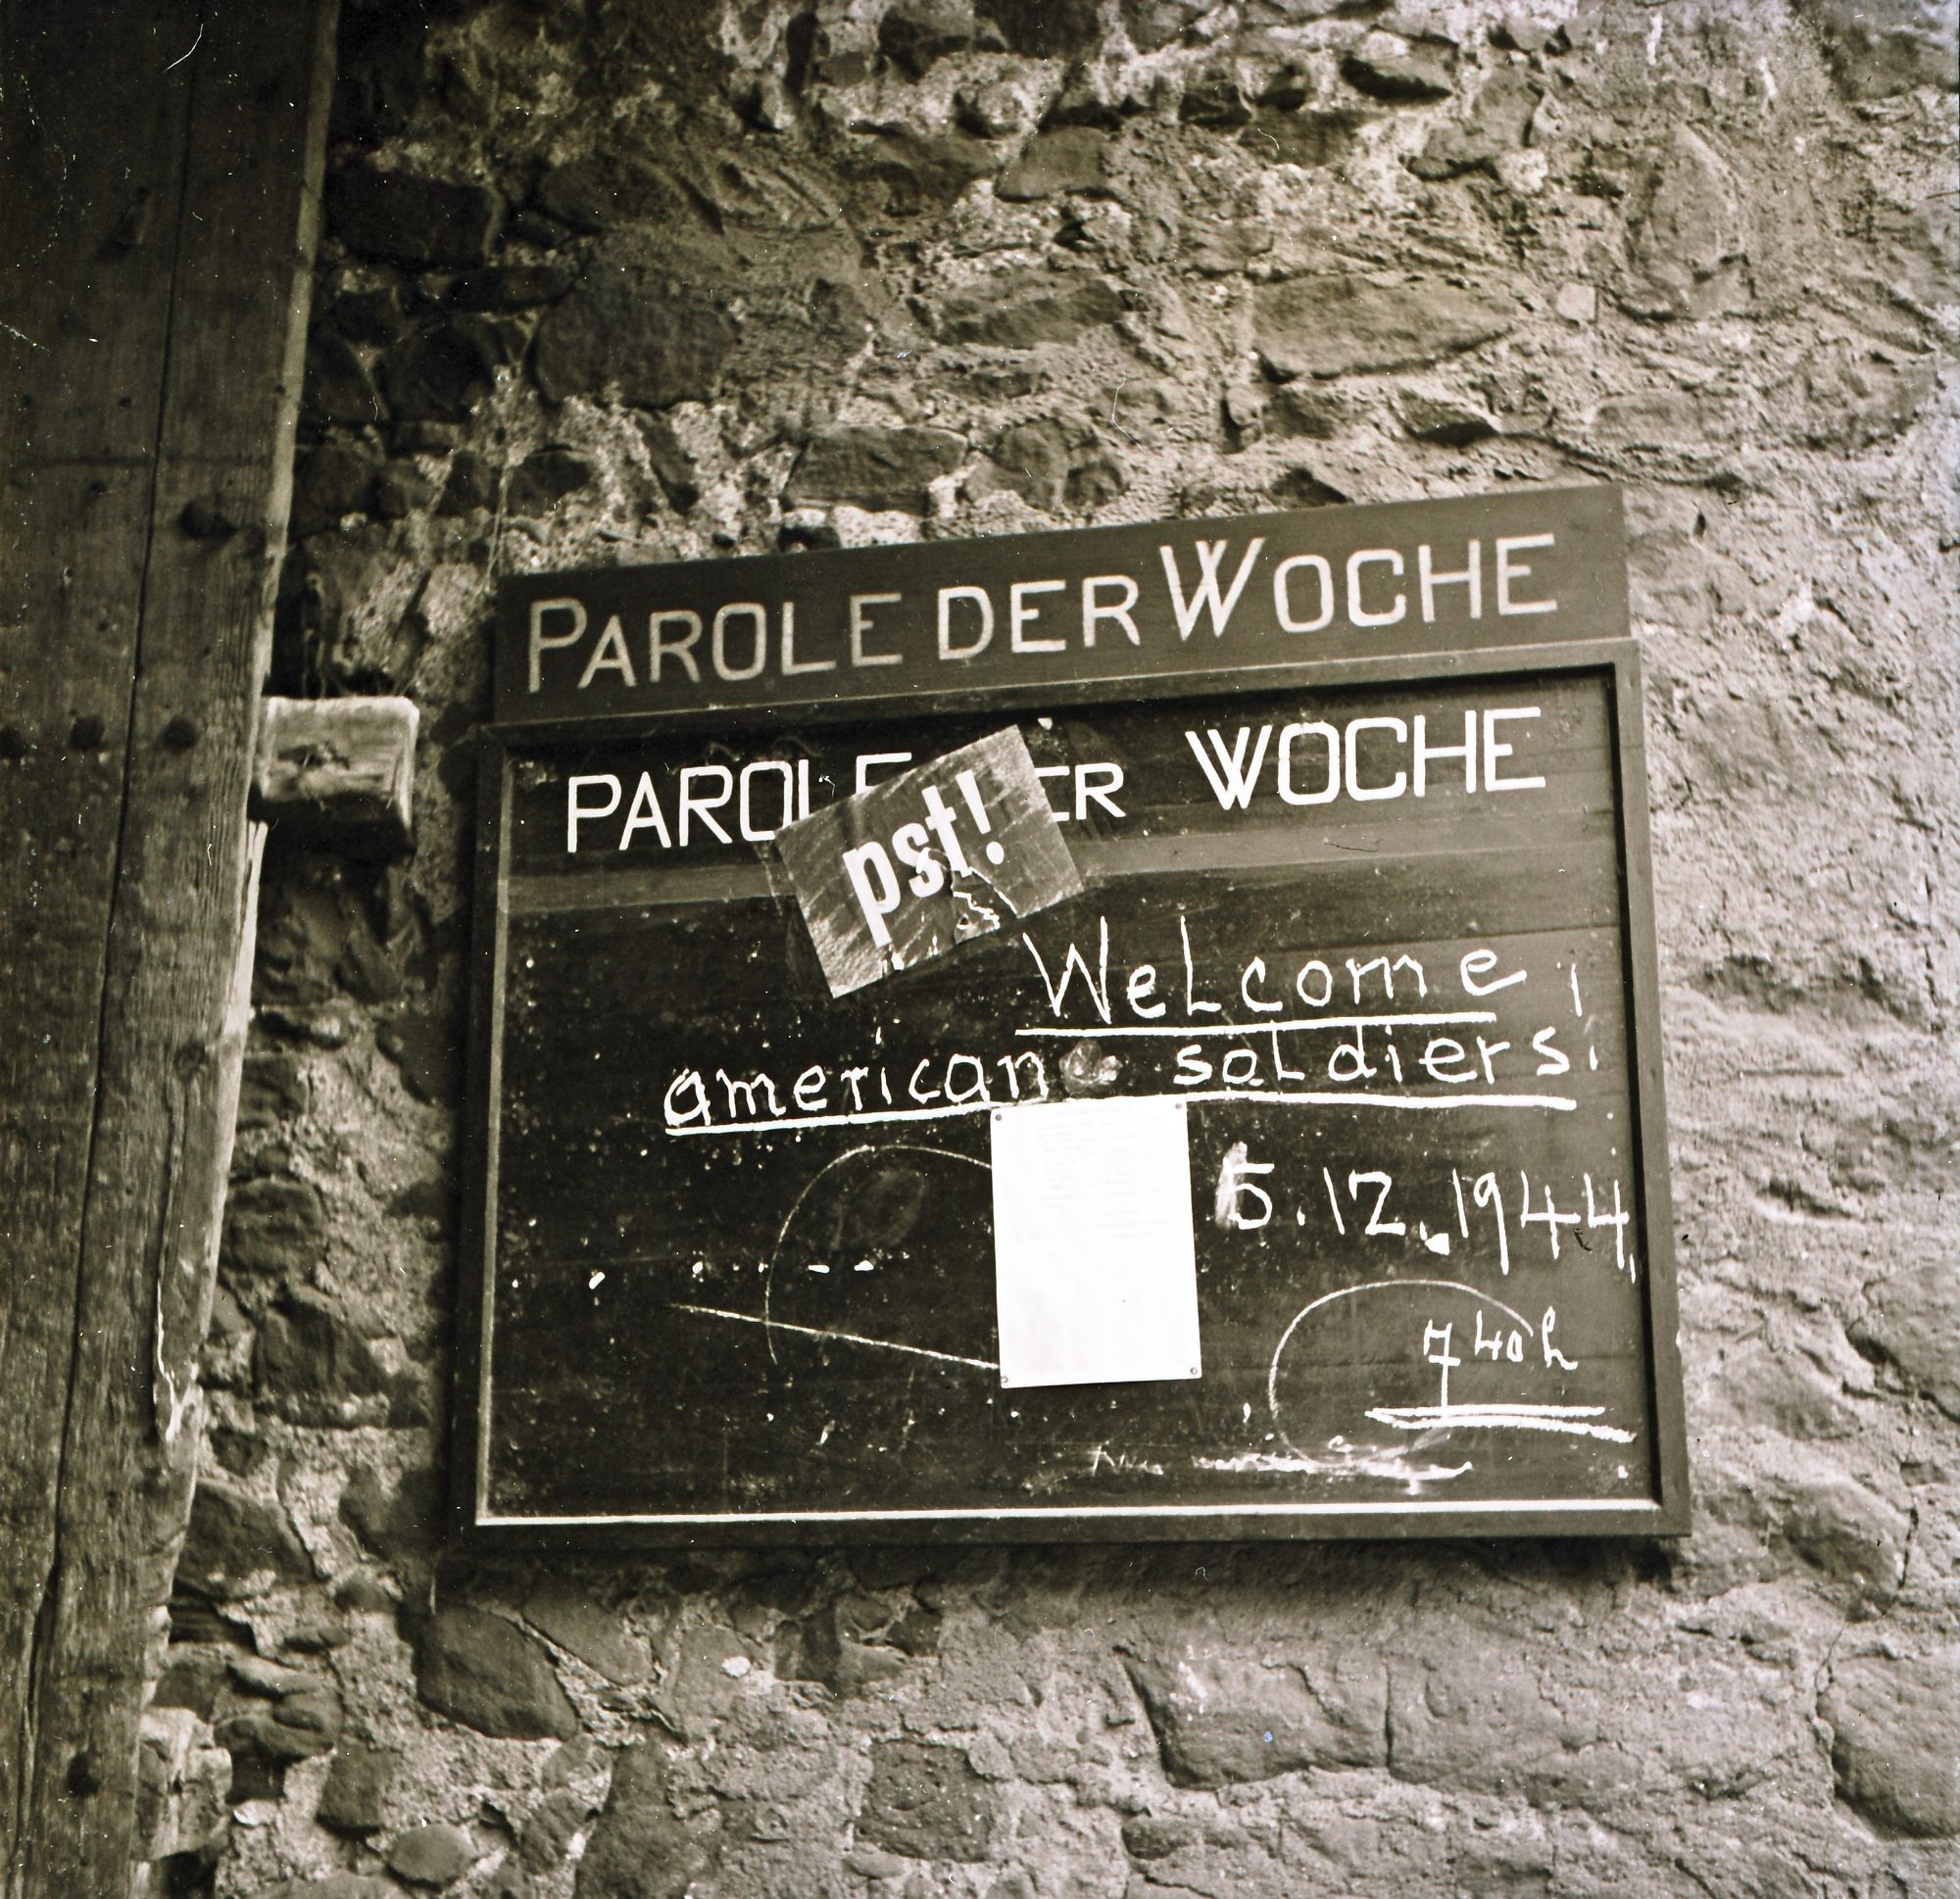 PAROLE DER WOCHE
PAROLE DER WOCHE
pst!
Welcome,
american soldiers.
5.12.1944,
7 40 h